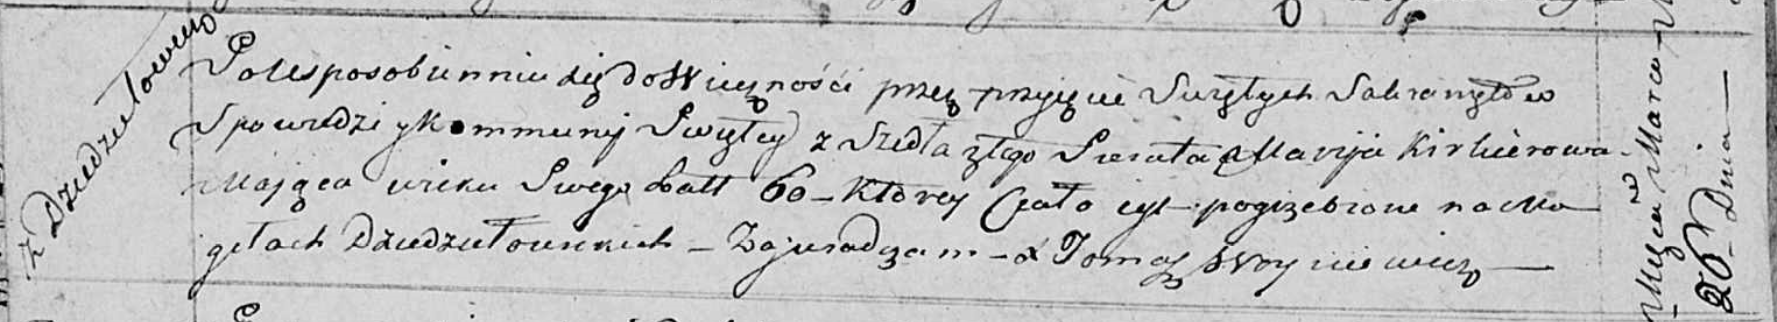 z Dziedziełowicz
Po Usposobienniu się do Wiecznośći przez przyięcie Swiętych Sakramętow
Spowiedzi y Kommunij Swiętey z Szedła ztego Swiata Maryja Kirkierowa
Maiąca wieku Swego Latt 60 – Ktorey Ciało iest pogrzebione na Mo
giłach Dziedziełowskich – Zaświadczam – X Tomasz Woyniewicz –
w Marcu
26 Dnia